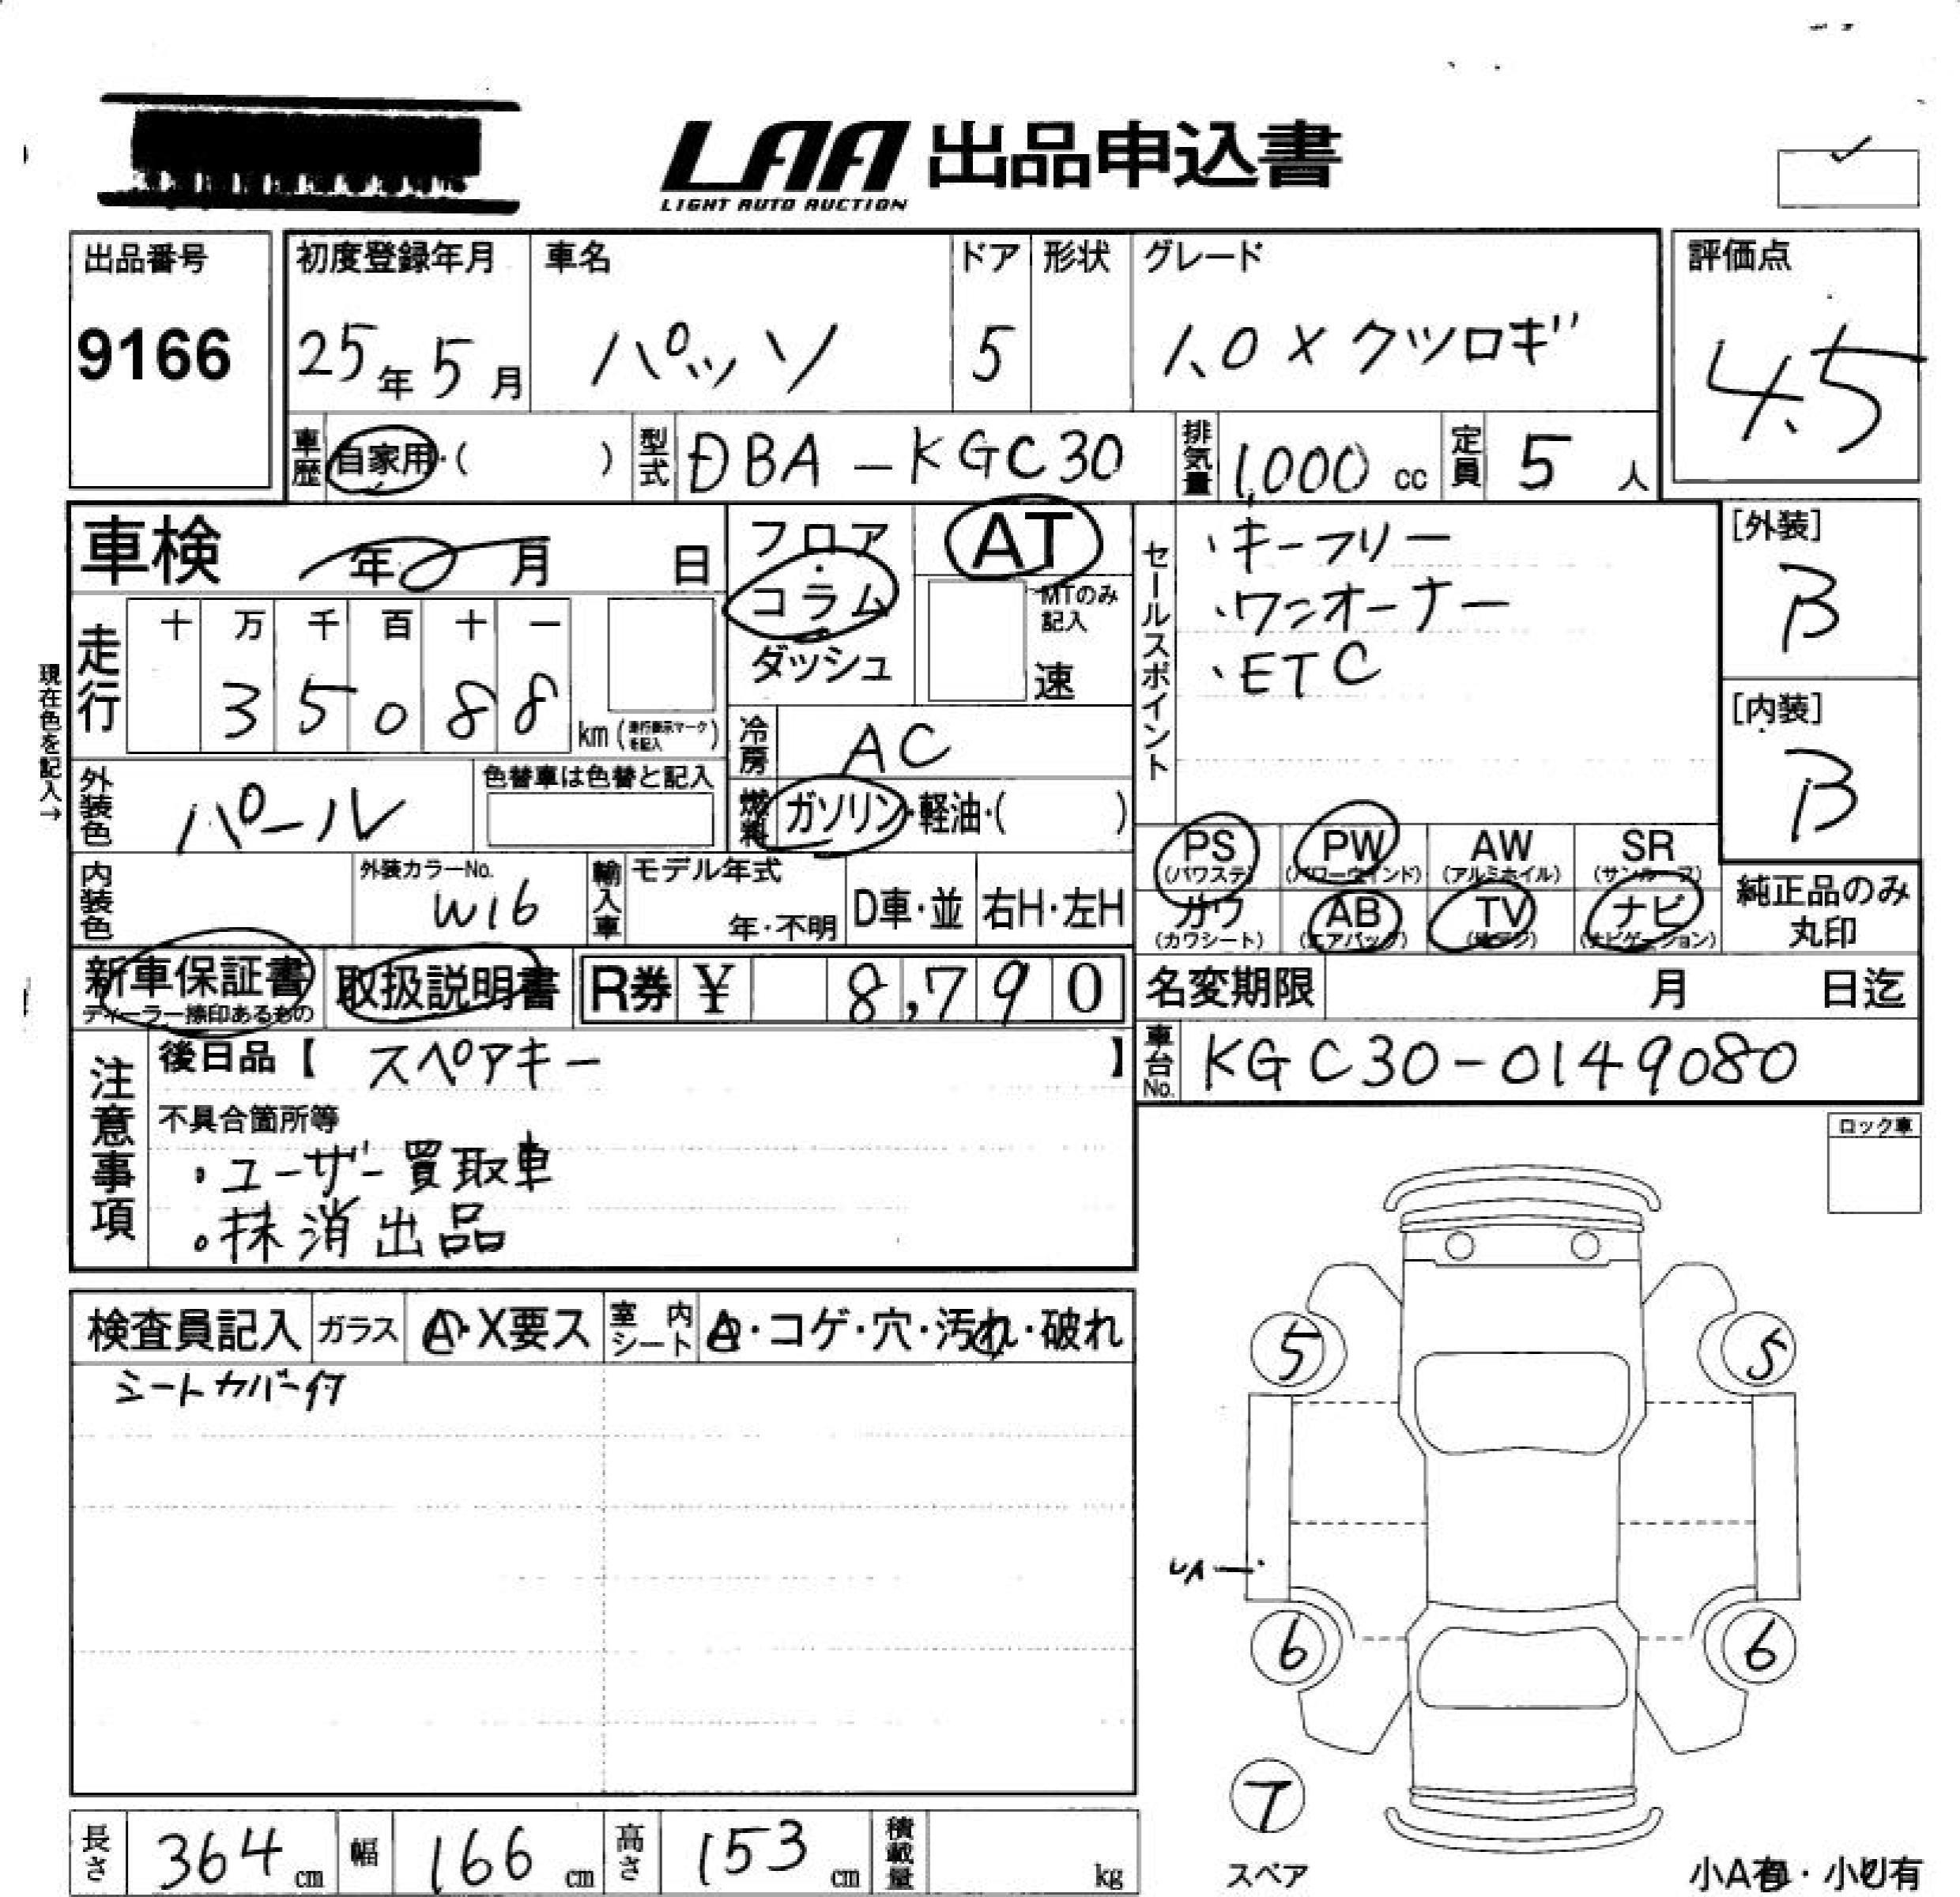 LAA 出品申込書
LIGHT AUTO AUCTION
出品番号
9166
初度登録年月
25年5月
車名
パッソ
ドア
5
形状
グレード
1.0 X クツロギ
評価点
4.5
車歴
自家用・( )
型式
DBA-KGC30
排気量
1,000 cc
定員
5 人
車検
年 月 日
フロア・コラム・ダッシュ
AT
MTのみ記入
速
セールスポイント
・キーフリー
・ワンオーナー
・ETC
[外装]
B
[内装]
B
現在色を記入→
走行
十 万 千 百 十 一
3 5 0 8 8
km
冷房
AC
外装色
パール
色替車は色替と記入
燃料
ガソリン・軽油・( )
内装色
外装カラーNo.
W16
輸入車
モデル年式
年・不明
D車・並
右H・左H
PS (パワステ) PW (パワーウインド) AW (アルミホイル) SR (サンルーフ)
カワ (カワシート) AB (エアバッグ) TV ナビ (ナビゲーション)
純正品のみ
丸印
新車保証書
ディーラー捺印あるもの
取扱説明書
R券 ¥ 8,790
名変期限
月 日迄
車台No.
KGC30-0149080
注意事項
後日品【 スペアキー 】
不具合箇所等
・ユーザー買取車
・抹消出品
ロック車
検査員記入
ガラス
A・X要ス
室内シート
・コゲ・穴・汚れ・破れ
シートカバー付
5
5
6
6
7
スペア
長さ
364 cm
幅
166 cm
高さ
153 cm
積載量
kg
小A有・小U有